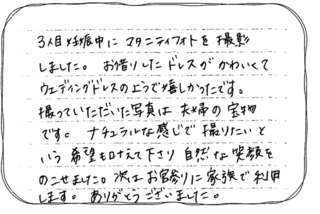 3人目妊娠中にマタニティフォトを撮影
しました。お借りしたドレスがかわいくて
ウェディングドレスのようで嬉しかったです。
撮っていただいた写真は夫婦の宝物
です。ナチュラルな感じで撮りたいと
いう希望も叶えて下さり自然な笑顔を
のこせました。次はお宮参りに家族で利用
します。ありがとうございました。